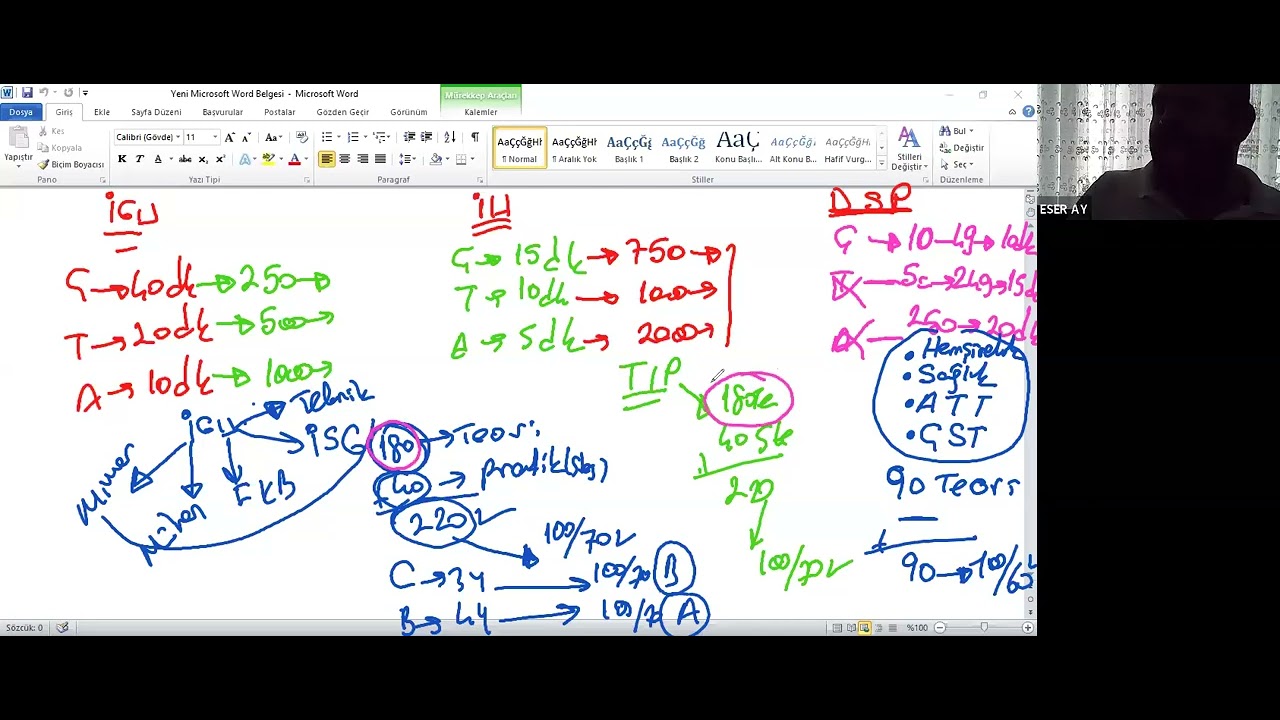 Yeni Microsoft Word Belgesi - Microsoft Word
Mürekkep Araçları
Dosya Giriş Ekle Sayfa Düzeni Başvurular Postalar Gözden Geçir Görünüm Kalemler
Yapıştır
Kes
Kopyala
Biçim Boyacısı
Calibri (Gövde) 11
AaÇçĞğHł AaÇçĞğHł AaÇçĞġ AaÇçĞğ AaÇ AaÇçĞğł AaÇçĞğHł
¶ Normal ¶ Aralık Yok Başlık 1 Başlık 2 Konu Başlı... Alt Konu B... Hafif Vurg...
Stilleri Değiştir
Bul
Değiştir
Seç
Pano Yazı Tipi Paragraf Stiller Düzenleme
ESER AY
İGU
Ç → 40dk → 250 →
T → 20dk → 500 →
A → 10dk → 1000 →
İGU → Teknik
İSG
Mimar
FKB
180 → Teori
+ 40 → pratik(staj)
220 ✓
100/70 ✓
C → 34 → 100/70 B
B → 44 → 100/70 A
İH
Ç → 15dk → 750 →
T → 10dk → 1000 →
A → 5dk → 2000 →
TIP
180Te
40 Stc
+
220
100/70 ✓
DSP
Ç → 10-49 → 10dk
→ 50-249 → 15dk
250 → 20dk
• Hemşirelik
• Sağlık
• ATT
• ÇST
90 Teori
+
90 → 100/60
Sözcük: 0
%100